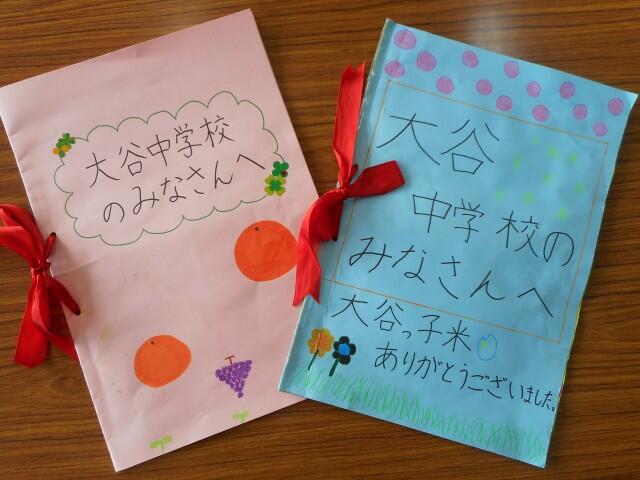 大谷中学校
のみなさんへ
大谷
中学校の
みなさんへ
大谷っ子米
ありがとうございました。